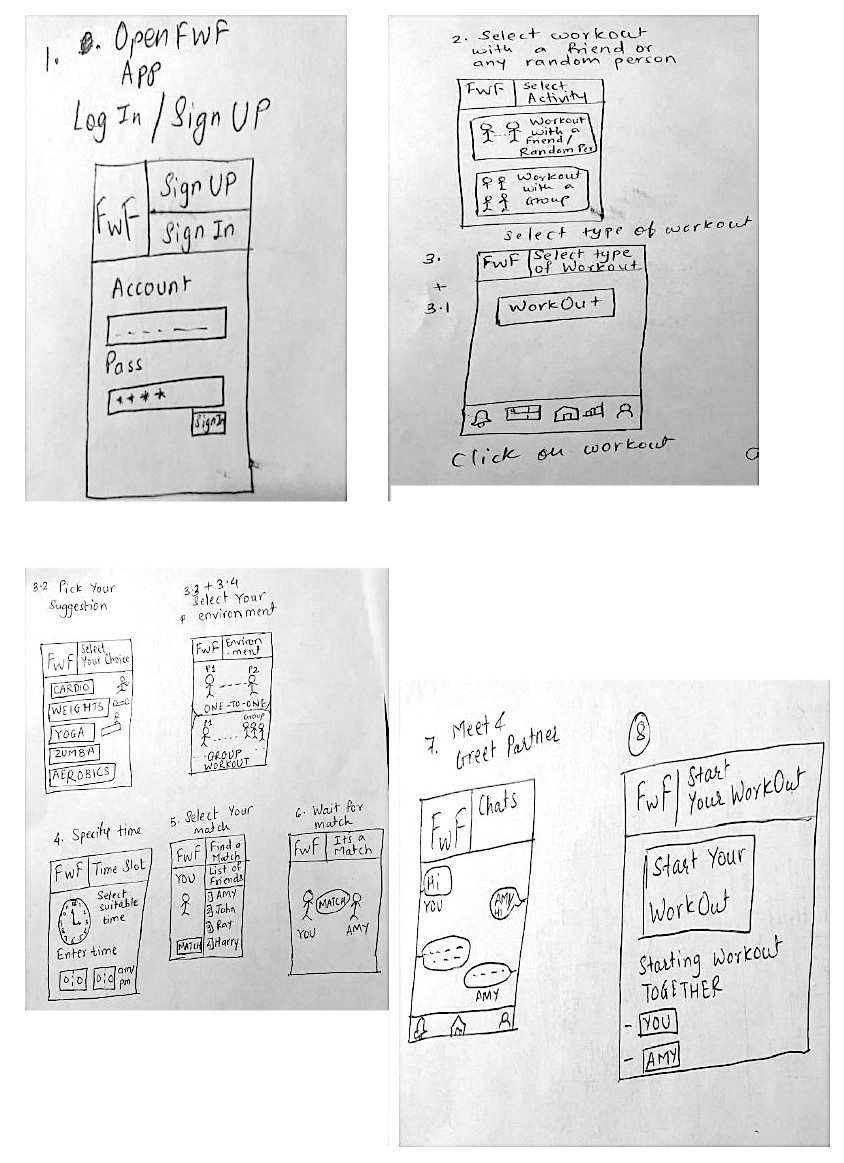 1. B. Open FWF
App
Log In / Sign UP
FwF
Sign UP
Sign In
Account
Pass
****
Sign In
2. Select workout
with a friend or
any random person
FWF
Select
Activity
Workout
with a
Friend/
Random Per
Workout
with a
Group
Select type of workout
3.
+
3.1
FWF
Select type
of Workout
WorkOut
Click on workout
3.2 Pick Your
Suggestion
FwF
Select
Your Choice
CARDIO
WEIGHTS
YOGA
ZUMBA
AEROBICS
3.3 + 3.4
Select Your
environment
FWF
Environ
-ment
P1
P2
ONE-TO-ONE
P1
GROUP
GROUP
WORKOUT
4. Specify time
FwF
Time Slot
Select
suitable
time
Enter time
0:0
0:0
am/
pm
5. Select Your
match
FwF
Find a
Match
YOU
List of
Friends
1) AMY
2) John
3) Ray
4) Harry
MATCH
6. Wait for
match
FWF
It's a
Match
MATCH
YOU
AMY
7. Meet &
Greet Partner
FWF
Chats
Hi
YOU
AMY
Hi
AMY
8
FwF
Start
Your WorkOut
Start Your
WorkOut
Starting Workout
TOGETHER
- YOU
- AMY